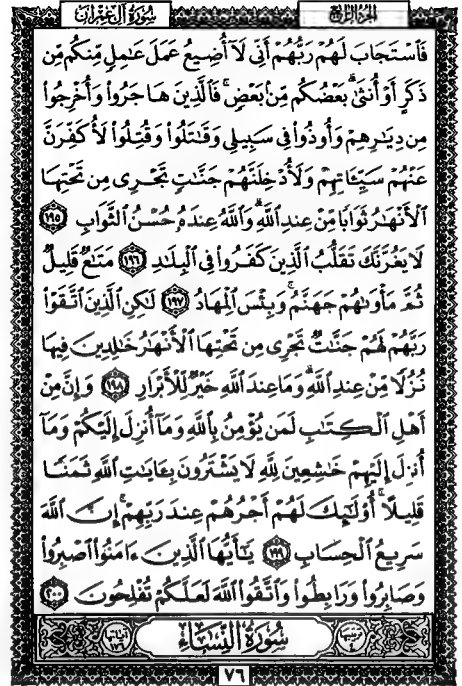 الجزء الرابع
سورة آل عمران
فَاسْتَجَابَ لَهُمْ رَبُّهُمْ أَنِّي لَا أُضِيعُ عَمَلَ عَامِلٍ مِّنكُم مِّن
ذَكَرٍ أَوْ أُنثَىٰ بَعْضُكُم مِّن بَعْضٍ فَالَّذِينَ هَاجَرُوا وَأُخْرِجُوا
مِن دِيَارِهِمْ وَأُوذُوا فِي سَبِيلِي وَقَاتَلُوا وَقُتِلُوا لَأُكَفِّرَنَّ
عَنْهُمْ سَيِّئَاتِهِمْ وَلَأُدْخِلَنَّهُمْ جَنَّاتٍ تَجْرِي مِن تَحْتِهَا
الْأَنْهَارُ ثَوَابًا مِّنْ عِندِ اللَّهِ وَاللَّهُ عِندَهُ حُسْنُ الثَّوَابِ ١٩٥
لَا يَغُرَّنَّكَ تَقَلُّبُ الَّذِينَ كَفَرُوا فِي الْبِلَادِ ١٩٦ مَتَاعٌ قَلِيلٌ
ثُمَّ مَأْوَاهُمْ جَهَنَّمُ وَبِئْسَ الْمِهَادُ ١٩٧ لَٰكِنِ الَّذِينَ اتَّقَوْا
رَبَّهُمْ لَهُمْ جَنَّاتٌ تَجْرِي مِن تَحْتِهَا الْأَنْهَارُ خَالِدِينَ فِيهَا
نُزُلًا مِّنْ عِندِ اللَّهِ وَمَا عِندَ اللَّهِ خَيْرٌ لِّلْأَبْرَارِ ١٩٨ وَإِنَّ مِنْ
أَهْلِ الْكِتَابِ لَمَن يُؤْمِنُ بِاللَّهِ وَمَا أُنزِلَ إِلَيْكُمْ وَمَا
أُنزِلَ إِلَيْهِمْ خَاشِعِينَ لِلَّهِ لَا يَشْتَرُونَ بِـَٔايَاتِ اللَّهِ ثَمَنًا
قَلِيلًا أُولَٰئِكَ لَهُمْ أَجْرُهُمْ عِندَ رَبِّهِمْ إِنَّ اللَّهَ
سَرِيعُ الْحِسَابِ ١٩٩ يَا أَيُّهَا الَّذِينَ ءَامَنُوا اصْبِرُوا
وَصَابِرُوا وَرَابِطُوا وَاتَّقُوا اللَّهَ لَعَلَّكُمْ تُفْلِحُونَ ٢٠٠
ترتيبها ٤
سورة النساء
آياتها ١٧٦
٧٦